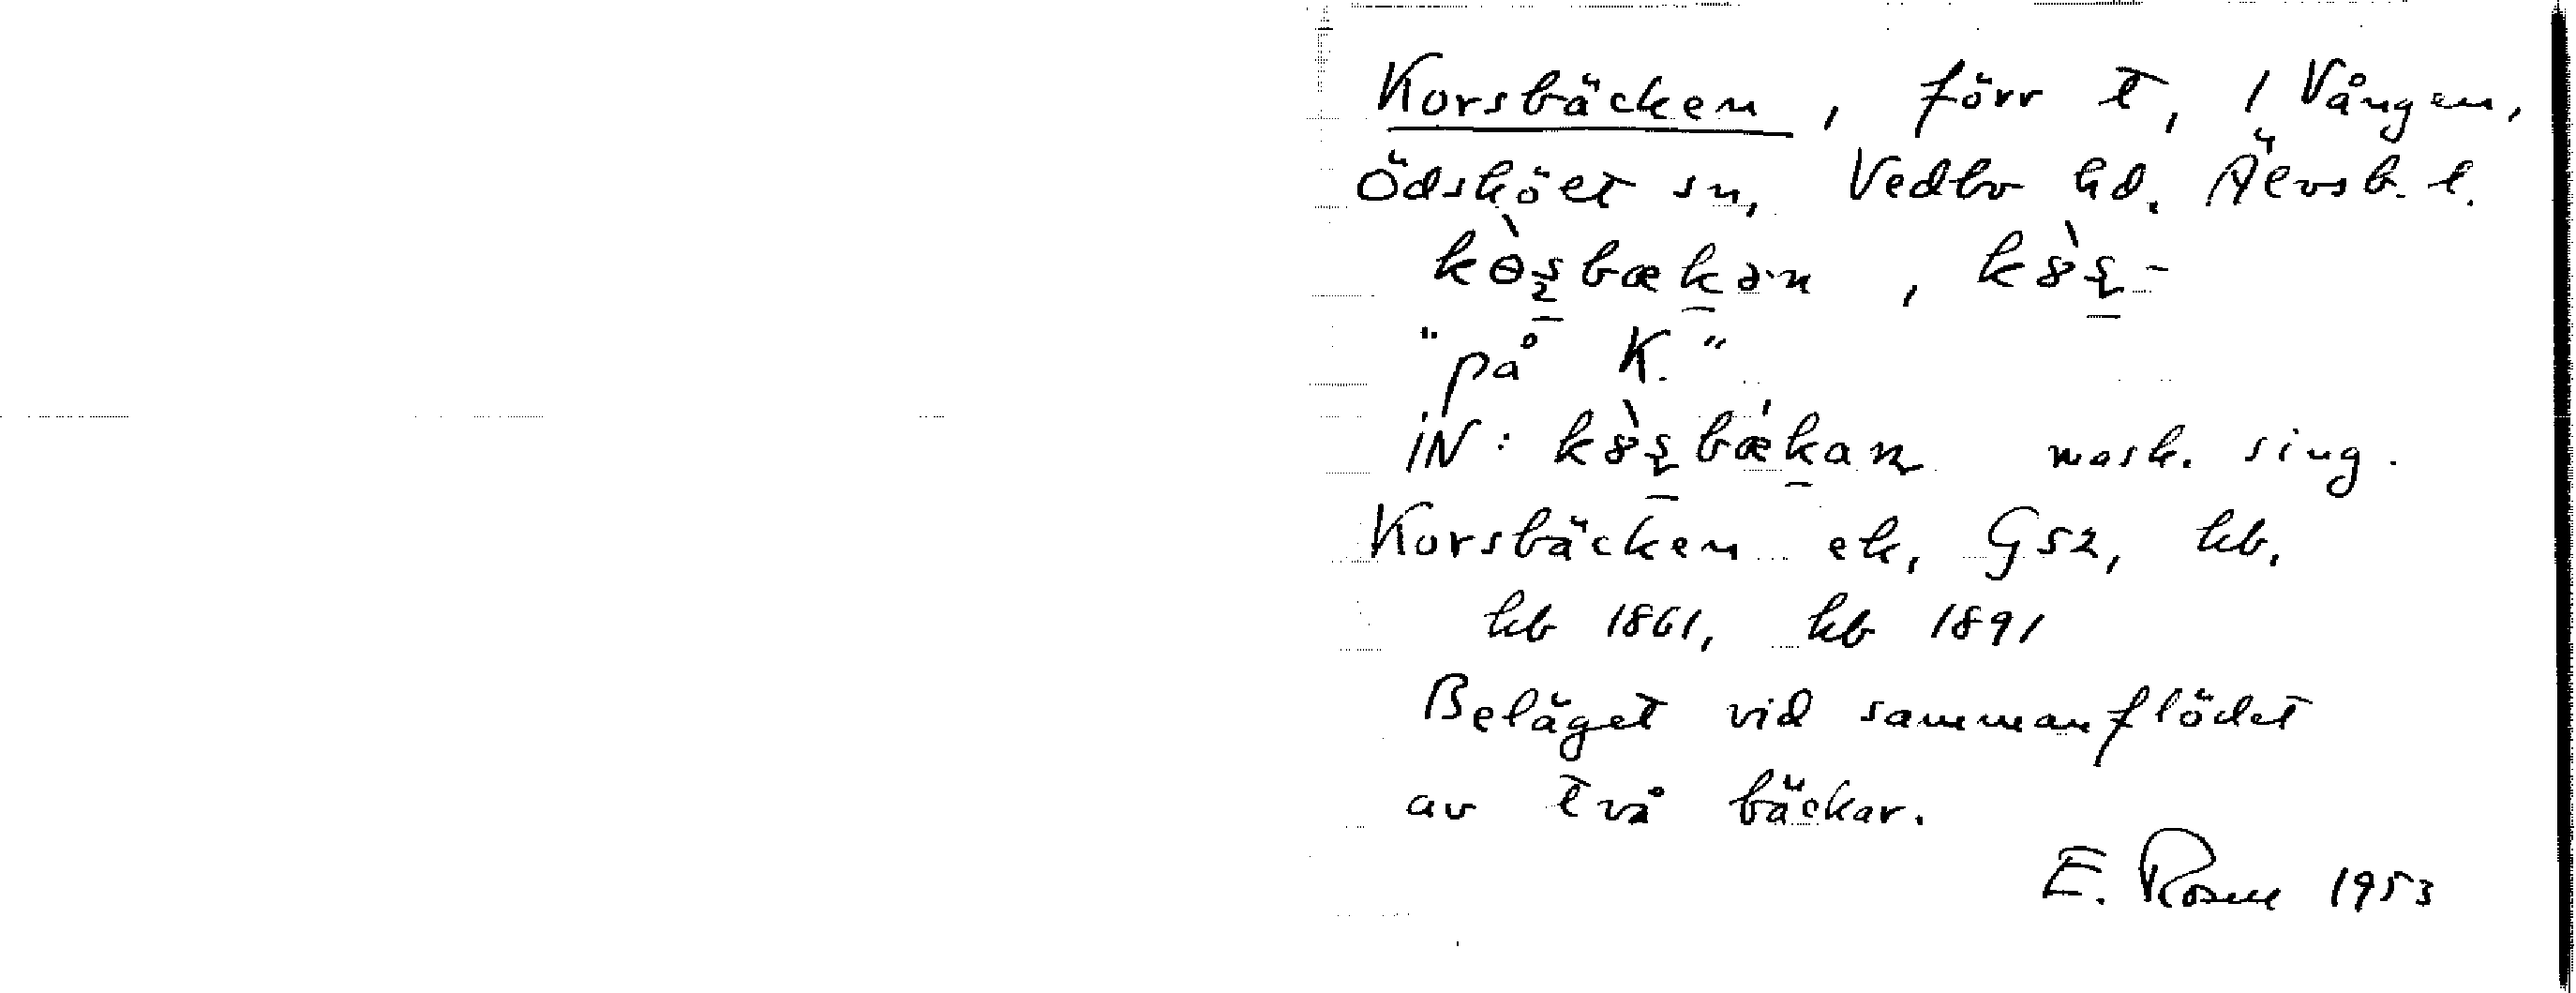 Korsbäcken, förr t, 1 Vången,
Ödsköet sn, Vedbo hd. Älvsb. l.
"på K."
iN: mask. sing.
Korsbäcken ek, G52, kb.
hb 1861, hb 1891
Beläget vid sammanflödet
av två bäckar.
E. Rosell 1953